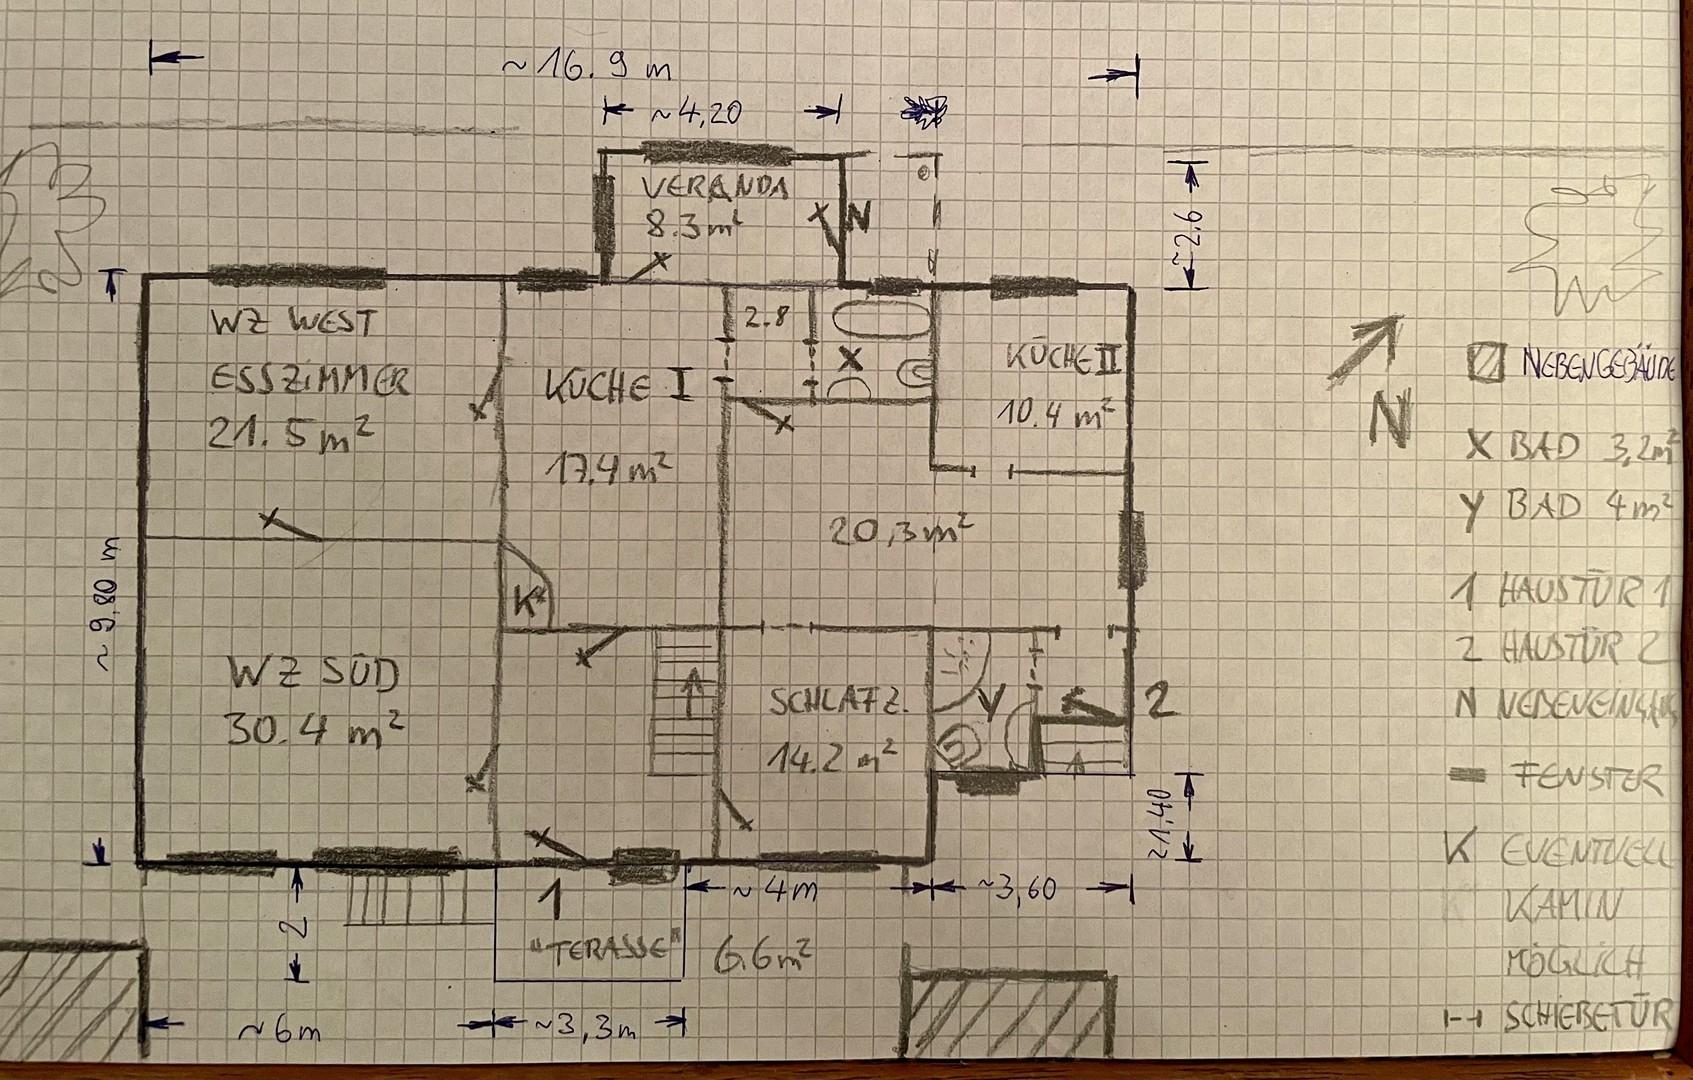 ~16.9 m
~4,20
VERANDA
8.3 m²
N
~2.6
WZ WEST
ESSZIMMER
21.5 m²
KÜCHE I
17.4 m²
2.8
X
KÜCHE II
10.4 m²
20,3 m²
~9,80 m
K
WZ SÜD
30.4 m²
SCHLAFZ.
14.2 m²
Y
2
~1,40
1
"TERASSE"
6.6 m²
2
~4m
~3,60
~6m
~3,3m
N
NEBENGEBÄUDE
X BAD 3,2m²
Y BAD 4m²
1 HAUSTÜR 1
2 HAUSTÜR 2
N NEBENEINGANG
FENSTER
K EVENTUELL
KAMIN
MÖGLICH
SCHIEBETÜR